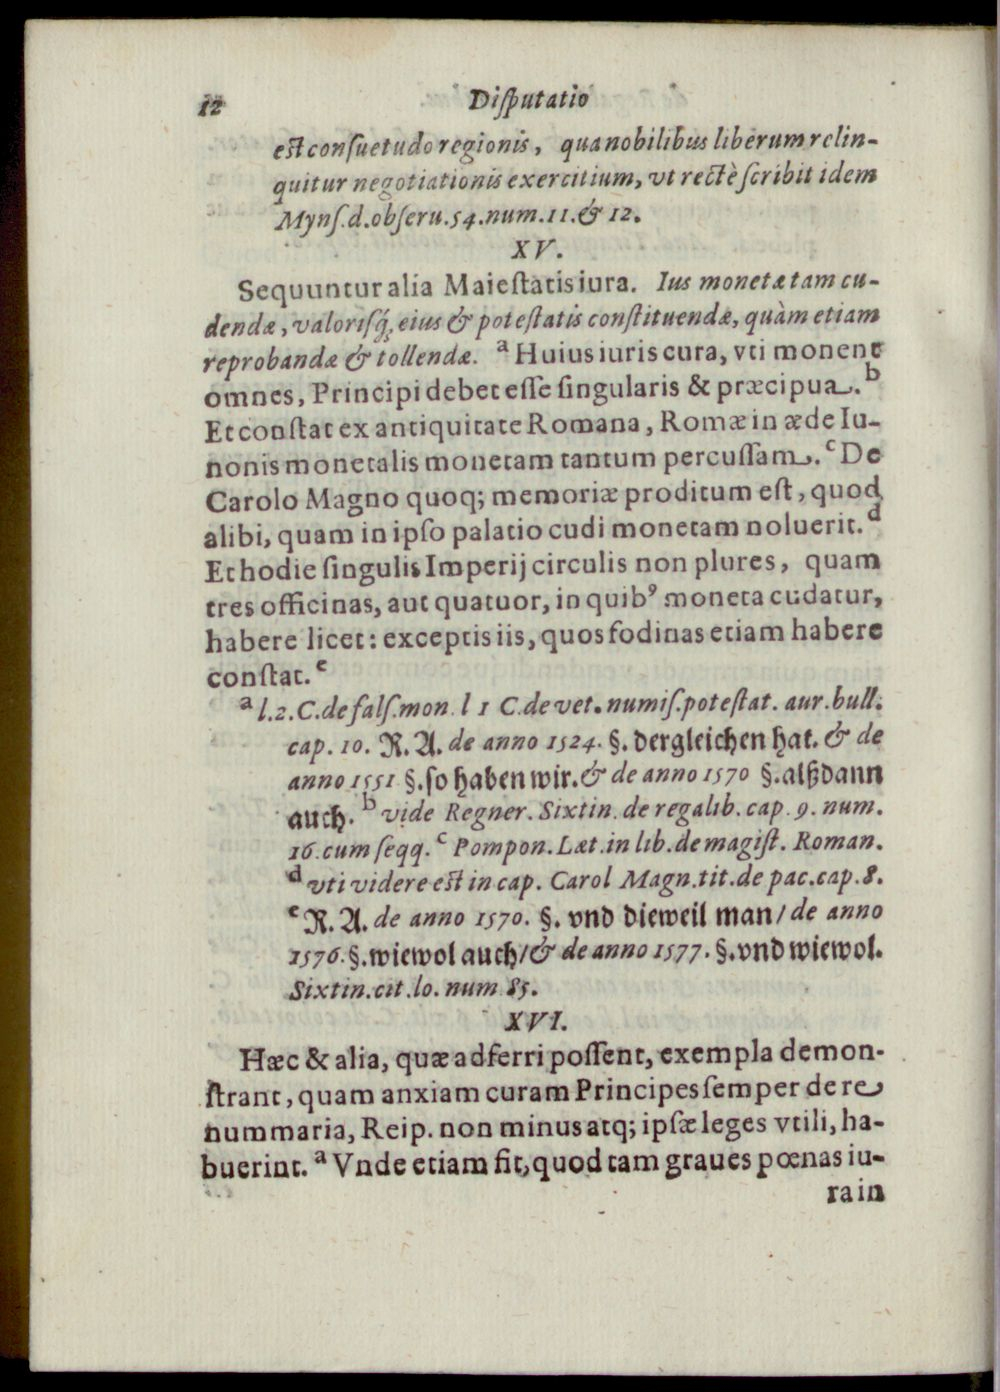 12 Disputatio
est consuetudo regionis, qua nobilibus liberum relin-
quitur negotiationis exercitium, vt rectè scribit idem
Myns. d. obseru. 54. num. 11. & 12.
XV.
Sequuntur alia Maiestatis iura. Ius monetæ tam cu-
dendæ, valorisq́; eius & potestatis constituendæ, quàm etiam
reprobandæ & tollendæ. a Huius iuris cura, vti monent
omnes, Principi debet esse singularis & præcipua. b
Et constat ex antiquitate Romana, Romæ in æde Iu-
nonis monetalis monetam tantum percussam. c De
Carolo Magno quoq; memoriæ proditum est, quod
alibi, quam in ipso palatio cudi monetam noluerit. d
Et hodie singulis Imperij circulis non plures, quam
tres officinas, aut quatuor, in quibꝰ moneta cudatur,
habere licet: exceptis iis, quos fodinas etiam habere
constat. e
a l. 2. C. de fals. mon. l 1 C. de vet. numis. potestat. aur. bull.
cap. 10. R. A. de anno 1524. §. dergleichen hat. & de
anno 1551 §. so haben wir. & de anno 1570 §. alßdann
auch. b vide Regner. Sixtin. de regalib. cap. 9. num.
16. cum seqq. c Pompon. Læt. in lib. de magist. Roman.
d vti videre est in cap. Carol Magn. tit. de pac. cap. 8.
e R. A. de anno 1570. §. vnd dieweil man / de anno
1576. §. wiewol auch / & de anno 1577. §. vnd wiewol.
Sixtin. cit. lo. num 85.
XVI.
Hæc & alia, quæ adferri possent, exempla demon-
strant, quam anxiam curam Principes semper de re
nummaria, Reip. non minus atq; ipsæ leges vtili, ha-
buerint. a Vnde etiam fit, quod tam graues pœnas iu-
ra in